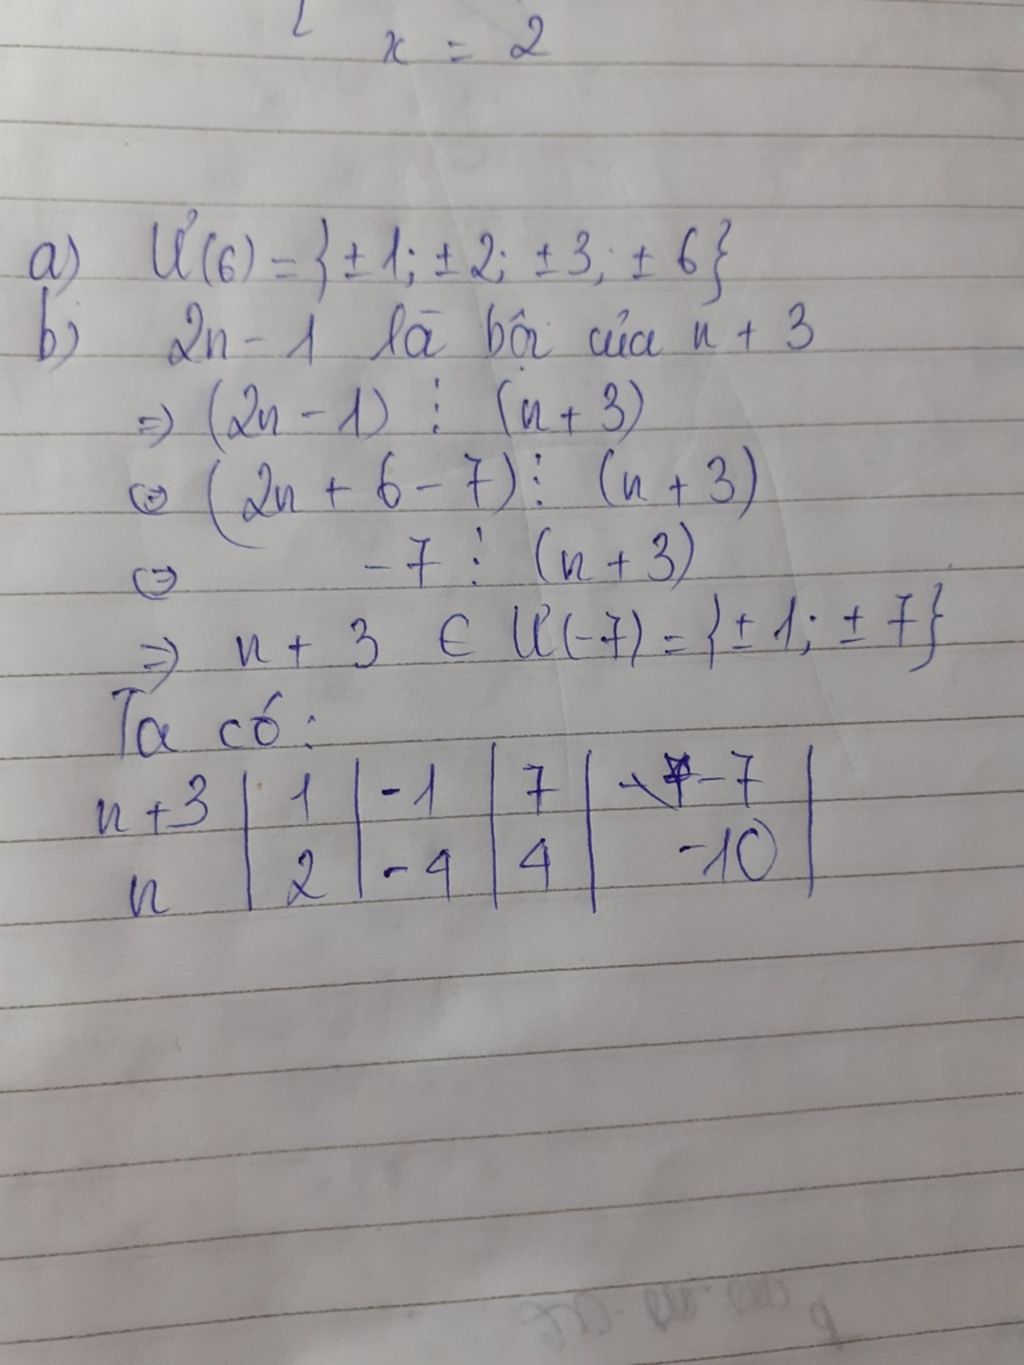 x = 2
a) Ư(6) = {±1; ±2; ±3; ±6}
b) 2n - 1 là bội của n + 3
=> (2n - 1) ⋮ (n + 3)
<=> (2n + 6 - 7) ⋮ (n + 3)
<=> -7 ⋮ (n + 3)
=> n + 3 ∈ Ư(-7) = {±1; ±7}
Ta có:
n+3 | 1 | -1 | 7 | -7 |
n | 2 | -4 | 4 | -10 |